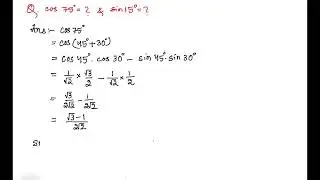 Q. cos 75° = ? & sin 15° = ?
Ans :- cos 75°
= cos (45° + 30°)
= cos 45° . cos 30° - sin 45° sin 30°
= 1/√2 × √3/2 - 1/√2 × 1/2
= √3/2√2 - 1/2√2
= √3-1/2√2
si